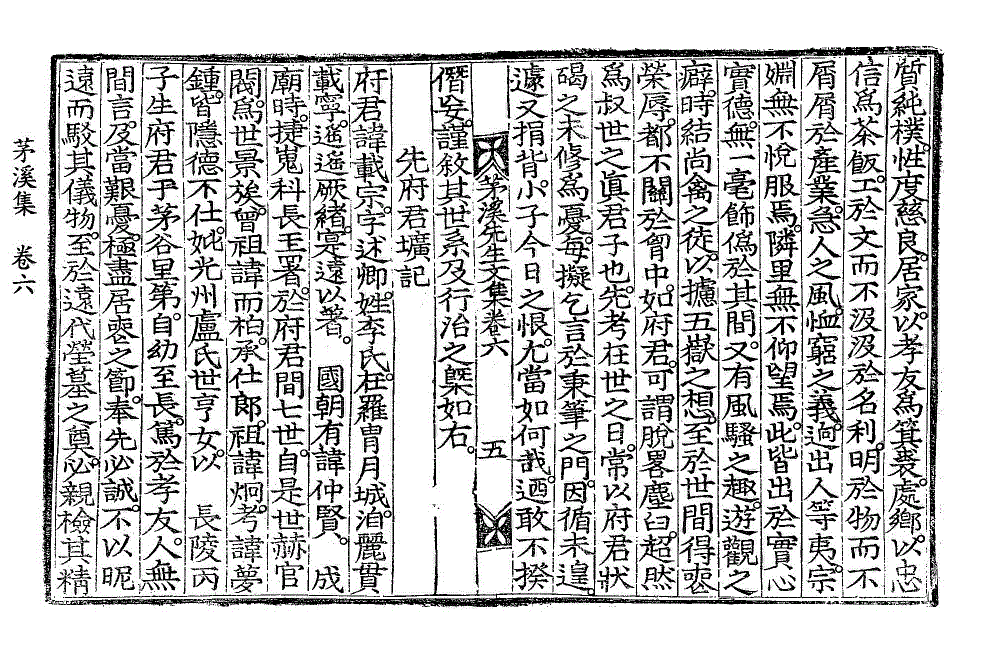 質純樸。性度慈良。居家。以孝友爲箕裘。處鄉。以忠
信爲茶飯。工於文而不汲汲於名利。明於物而不
屑屑於產業。急人之風。恤窮之義。逈出人等夷。宗
婣無不悅服焉。隣里無不仰望焉。此皆出於實心
實德。無一毫飾僞於其間。又有風騷之趣。遊觀之
癖。時結尚禽之徒。以攄五嶽之想。至於世間得喪
榮辱。都不關於胷中。如府君。可謂脫畧塵臼。超然
爲叔世之眞君子也。先考在世之日。常以府君狀
碣之未修爲憂。每擬乞言於秉筆之門。因循未遑。
遽又捐背。小子今日之恨。尤當如何哉。廼敢不揆
茅溪先生文集卷六 五
僭妄。謹敘其世系及行治之槩如右。
先府君壙記
府君諱載宗。字述卿。姓李氏。在羅胄月城。洎麗貫
載寧。遙遙厥緖。寔遠以著。 國朝有諱仲賢。 成
廟時。捷嵬科長玉署。於府君間七世。自是世赫官
閥。爲世景族。曾祖諱而栢。承仕郎。祖諱炯。考諱夢
鍾。皆隱德不仕。妣光州盧氏世亨女。以 長陵丙
子生府君于茅谷里第。自幼至長。篤於孝友。人無
間言。及當艱憂。極盡居喪之節。奉先必誠。不以昵
遠而駁其儀物。至於遠代塋墓之奠。必親檢其精
茅溪集 卷六